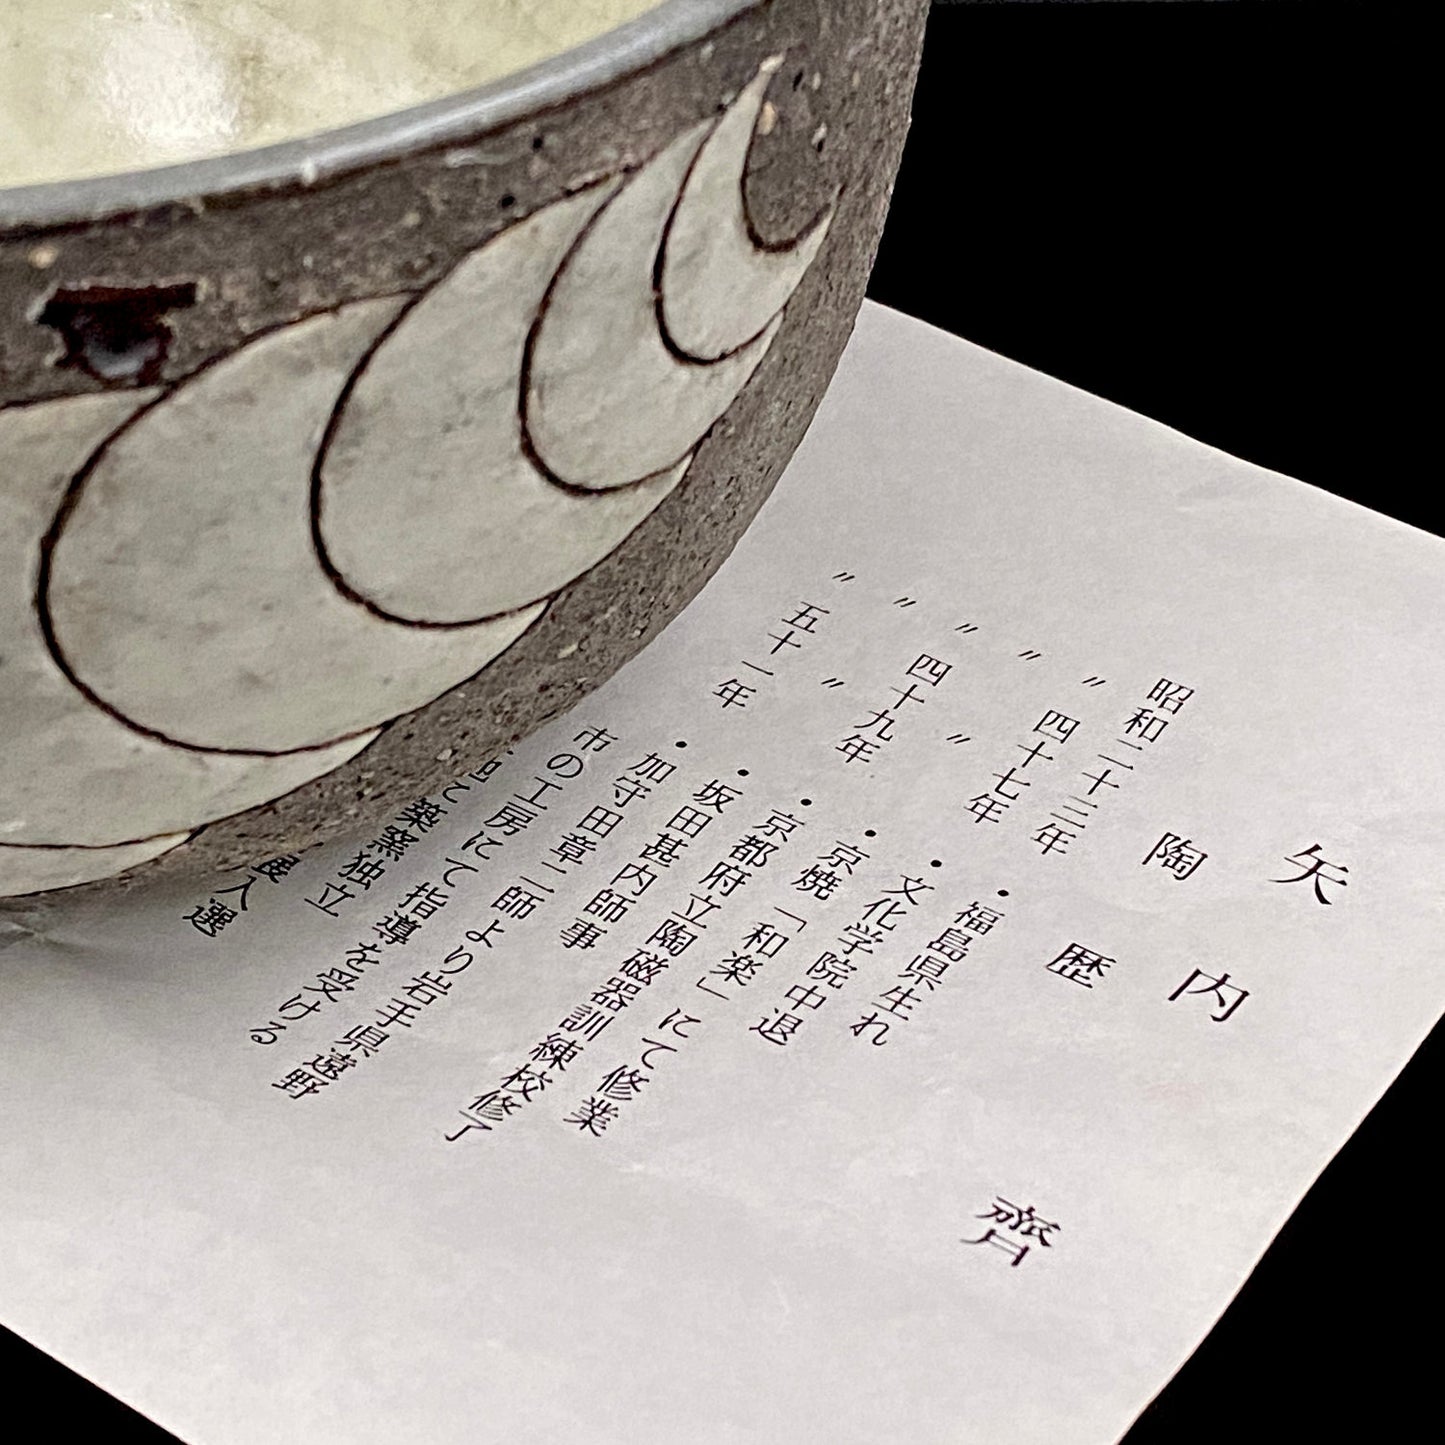 矢内 齊
陶歴
昭和二十三年 ・福島県生れ
〃 四十七年 ・文化学院中退
〃 〃 ・京焼「和楽」にて修業
〃 四十九年 ・京都府立陶磁器訓練校修了
〃 〃 ・坂田甚内師事
〃 五十一年 ・加守田章二師より岩手県遠野
市の工房にて指導を受ける
築窯独立
展入選